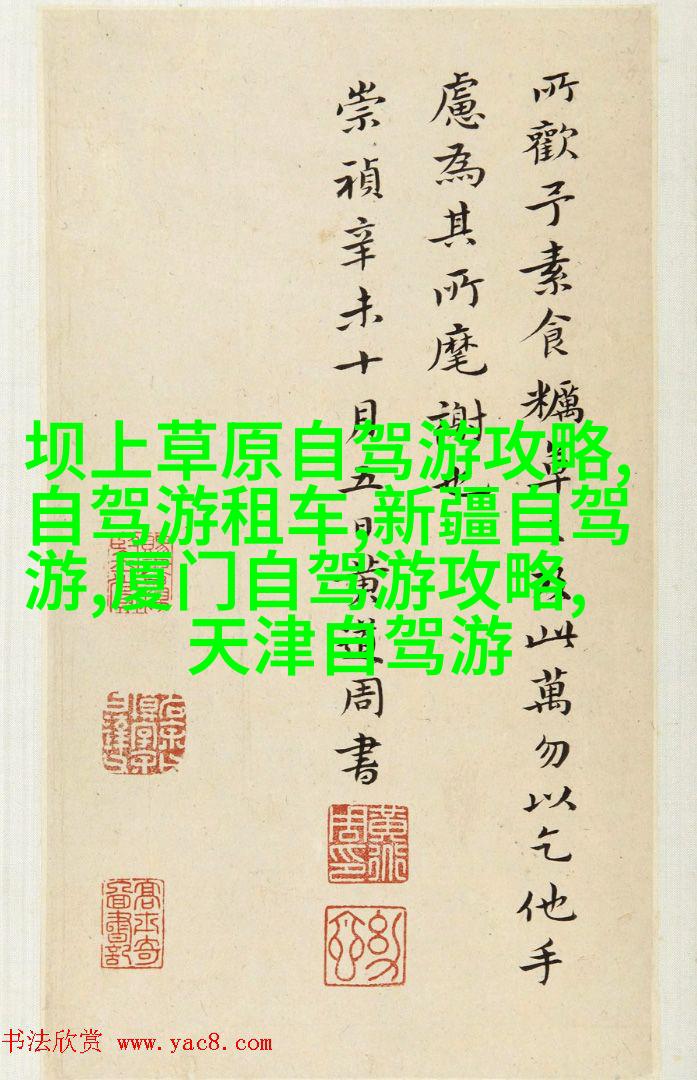 所歡予素食糲

山萬勿以乞他手
慮為其所麾謝也
崇禎辛未十月五日黄道周書
坝上草原自驾游攻略,
自驾游租车,新疆自驾
游,厦门自驾游攻略,
天津自驾游
黄道周印
高士奇
書法欣赏 www.yac8.com